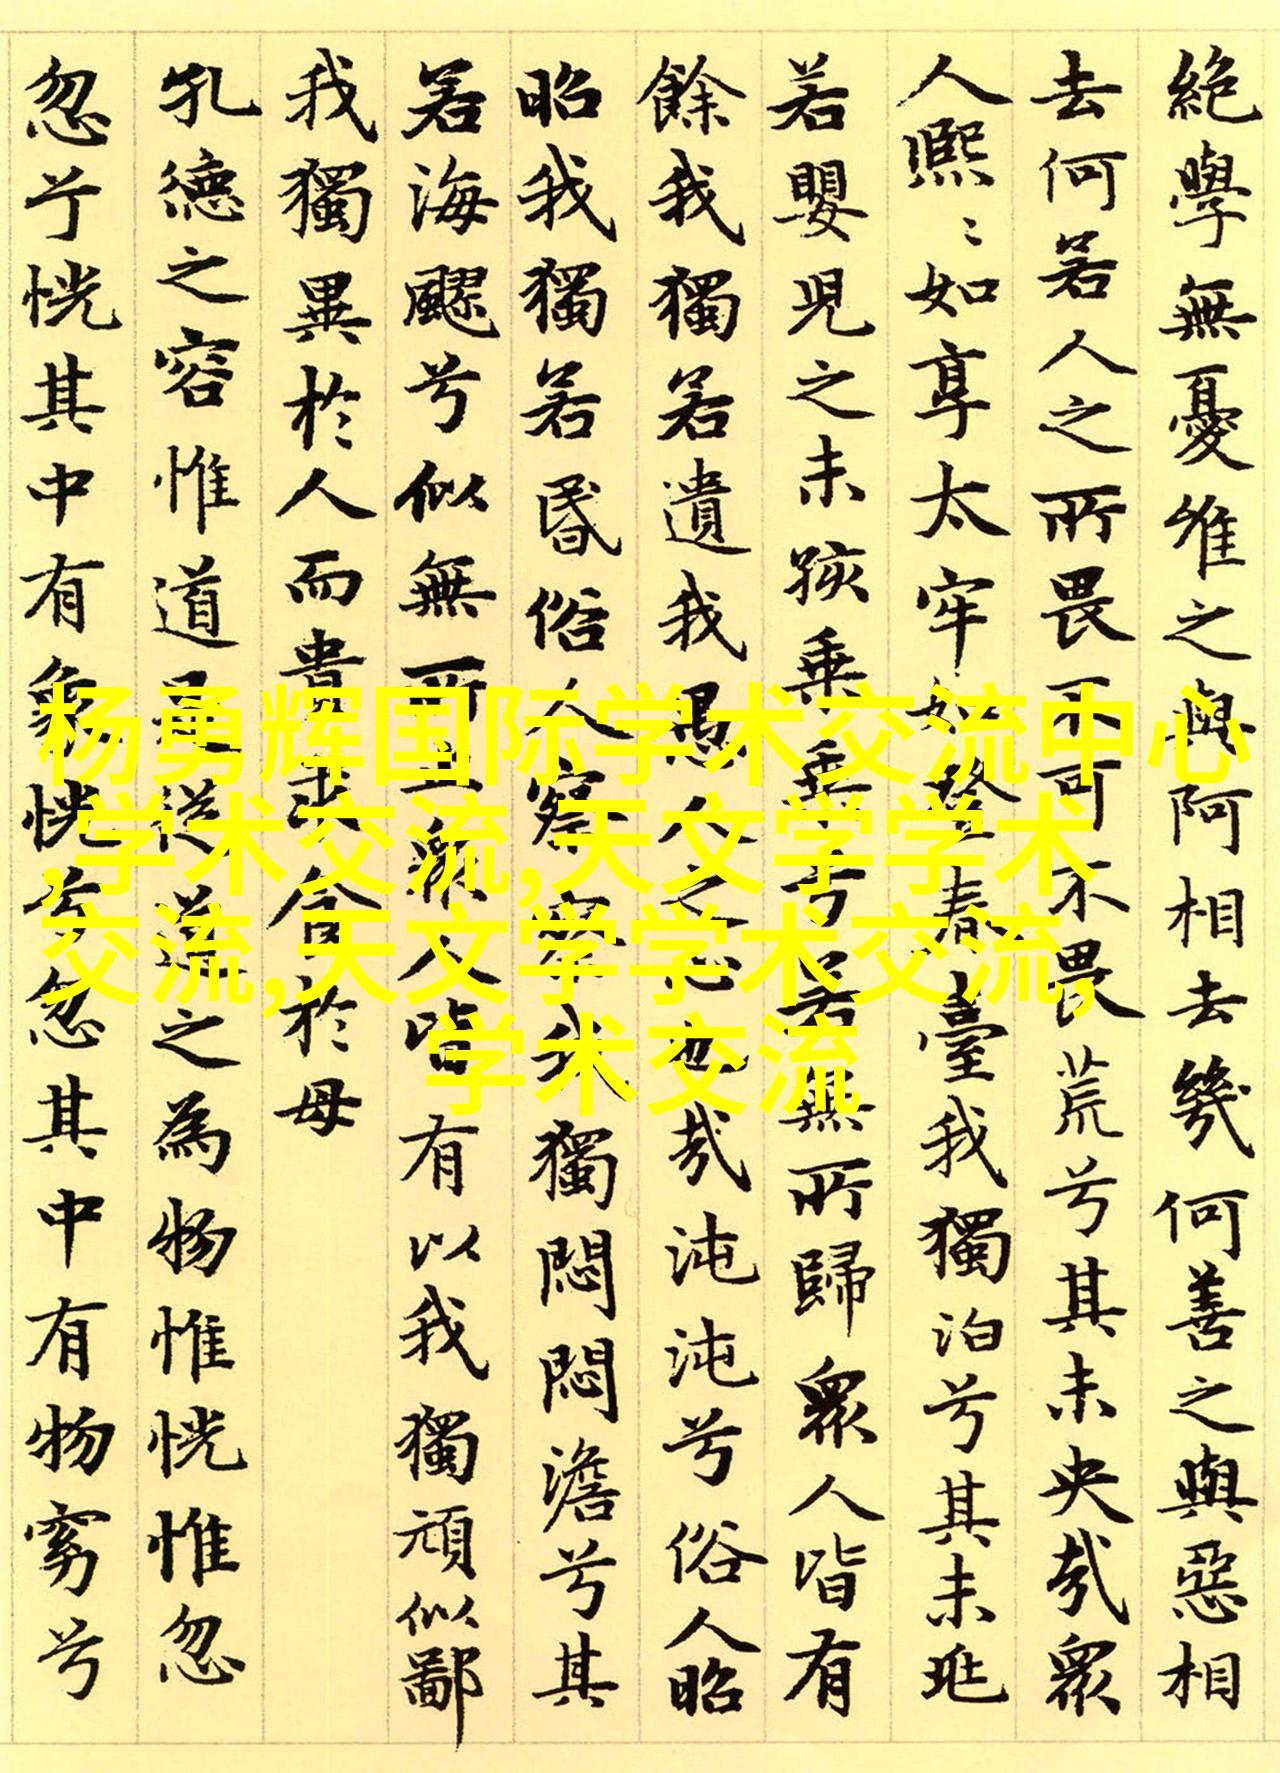 絶學無憂唯之與阿相去幾何善之與惡相
去何若人之所畏不可不畏荒兮其未央哉衆
人熈〻如享太牢如登春臺我獨泊兮其未兆
若嬰児之未孩乗乗兮若無所歸衆人皆有
餘我獨若遺我愚人之心也哉沌沌兮俗人昭
昭我獨若昬俗人察察我獨悶悶澹兮其
若海飂兮似無所止衆人皆有以我獨頑似鄙
我獨異於人而貴求食於母
孔德之容惟道是從道之為物惟恍惟忽
忽兮恍其中有象恍兮忽其中有物窈兮
杨勇辉国际学术交流中心
,学术交流,天文学学术
交流,天文学学术交流,
学术交流